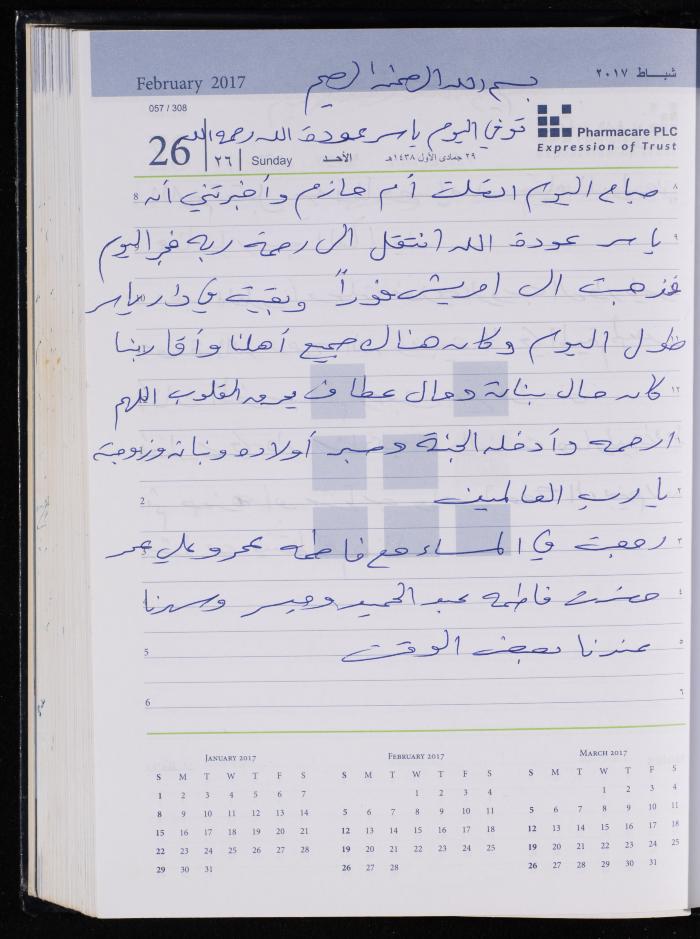 February 2017
بسم الله الرحمن الرحيم
شباط ٢٠١٧
057 / 308
26 | ٢٦ | Sunday الأحد ٢٩ جمادى الأول ١٤٣٨هـ
Pharmacare PLC
Expression of Trust
توفي اليوم ياسر عودة الله رحمه الله
8 صباح اليوم اتصلت أم حازم وأخبرتني أنه ٨
ياسر عودة الله انتقل الى رحمة ربه فجر اليوم ٩
فذهبت الى امريش فوراً وبقيت في دار ياسر
طول اليوم وكان هناك جميع أهلنا وأقاربنا
كان حال بناته وحال عطاف يحرق القلوب اللهم ١٢
ارحمه وأدخله الجنة وصبر أولاده وبناته وزوجته ١
2 يا رب العالمين ٢
رجعت في المساء مع فاطمه عمرو علي عمر ٣
حضرت فاطمه عبد الحميد وعبير وسهرنا ٤
5 عندنا بعض الوقت ٥
6 ٦
January 2017
S M T W T F S
1 2 3 4 5 6 7
8 9 10 11 12 13 14
15 16 17 18 19 20 21
22 23 24 25 26 27 28
29 30 31
February 2017
S M T W T F S
1 2 3 4
5 6 7 8 9 10 11
12 13 14 15 16 17 18
19 20 21 22 23 24 25
26 27 28
March 2017
S M T W T F S
1 2 3 4
5 6 7 8 9 10 11
12 13 14 15 16 17 18
19 20 21 22 23 24 25
26 27 28 29 30 31